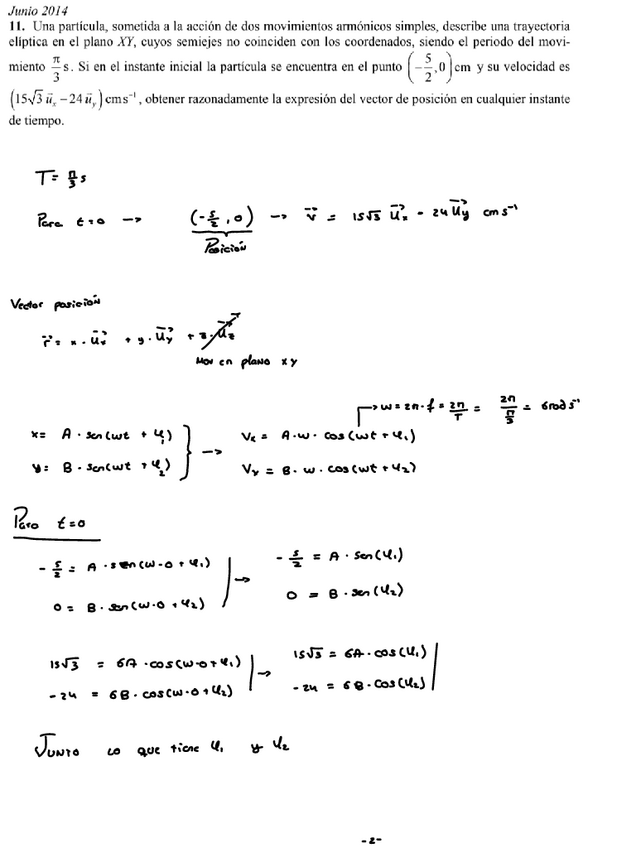 Junio 2014
11. Una partícula, sometida a la acción de dos movimientos armónicos simples, describe una trayectoria
elíptica en el plano XY, cuyos semiejes no coinciden con los coordenados, siendo el periodo del movi-
miento π/3 s. Si en el instante inicial la partícula se encuentra en el punto (-5/2, 0) cm y su velocidad es
(15√3 u⃗x - 24 u⃗y) cm s⁻¹, obtener razonadamente la expresión del vector de posición en cualquier instante
de tiempo.
T = π/3 s
Para t=0 → (-5/2, 0) → v⃗ = 15√3 u⃗x - 24 u⃗y cm s⁻¹
Posición
Vector posición
r⃗ = x · u⃗x + y · u⃗y + z · u⃗z
Mov en plano xy
→ w = 2π · f = 2π/T = 2π/(π/3) = 6 rad s⁻¹
x = A · sen(wt + φ1) → Vx = A · w · cos(wt + φ1)
y = B · sen(wt + φ2) Vy = B · w · cos(wt + φ2)
Para t=0
- 5/2 = A · sen(w·0 + φ1) → - 5/2 = A · sen(φ1)
0 = B · sen(w·0 + φ2) 0 = B · sen(φ2)
15√3 = 6A · cos(w·0 + φ1) → 15√3 = 6A · cos(φ1)
-24 = 6B · cos(w·0 + φ2) -24 = 6B · cos(φ2)
Junto lo que tiene φ1 y φ2
-2-